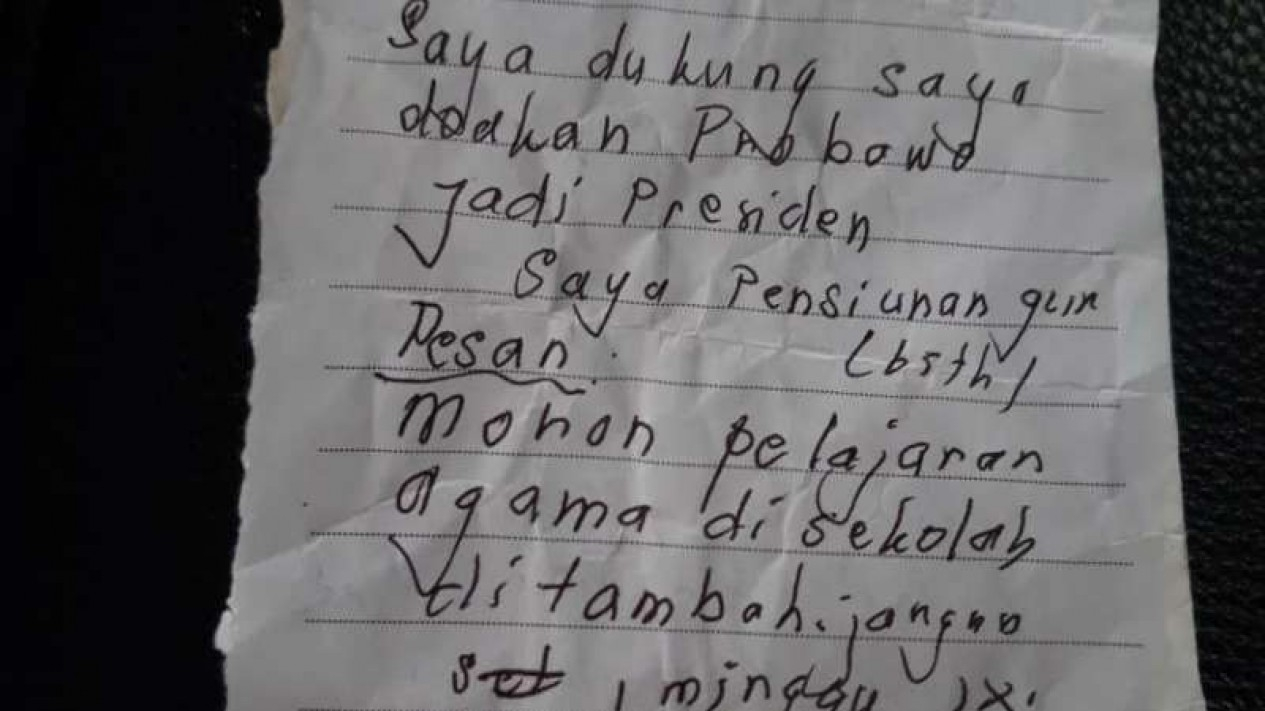 Saya dukung saya
doakan Prabowo
Jadi Presiden
Saya Pensiunan
Pesan. (bsth)
Mohon pelajaran
agama di sekolah
ditambah. jangan
1 minggu 1x.